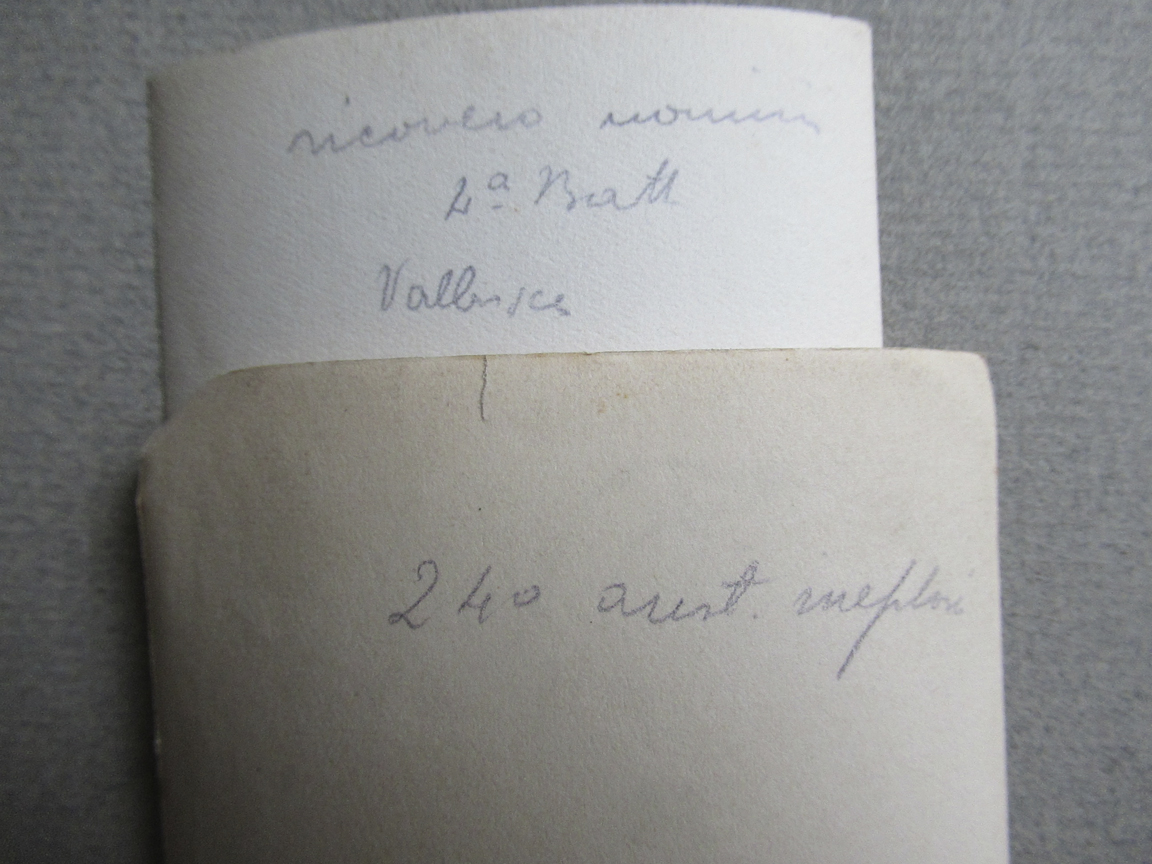 ricovero uomini
4ª Batt
Vallarsa
240 aust. inesplosi